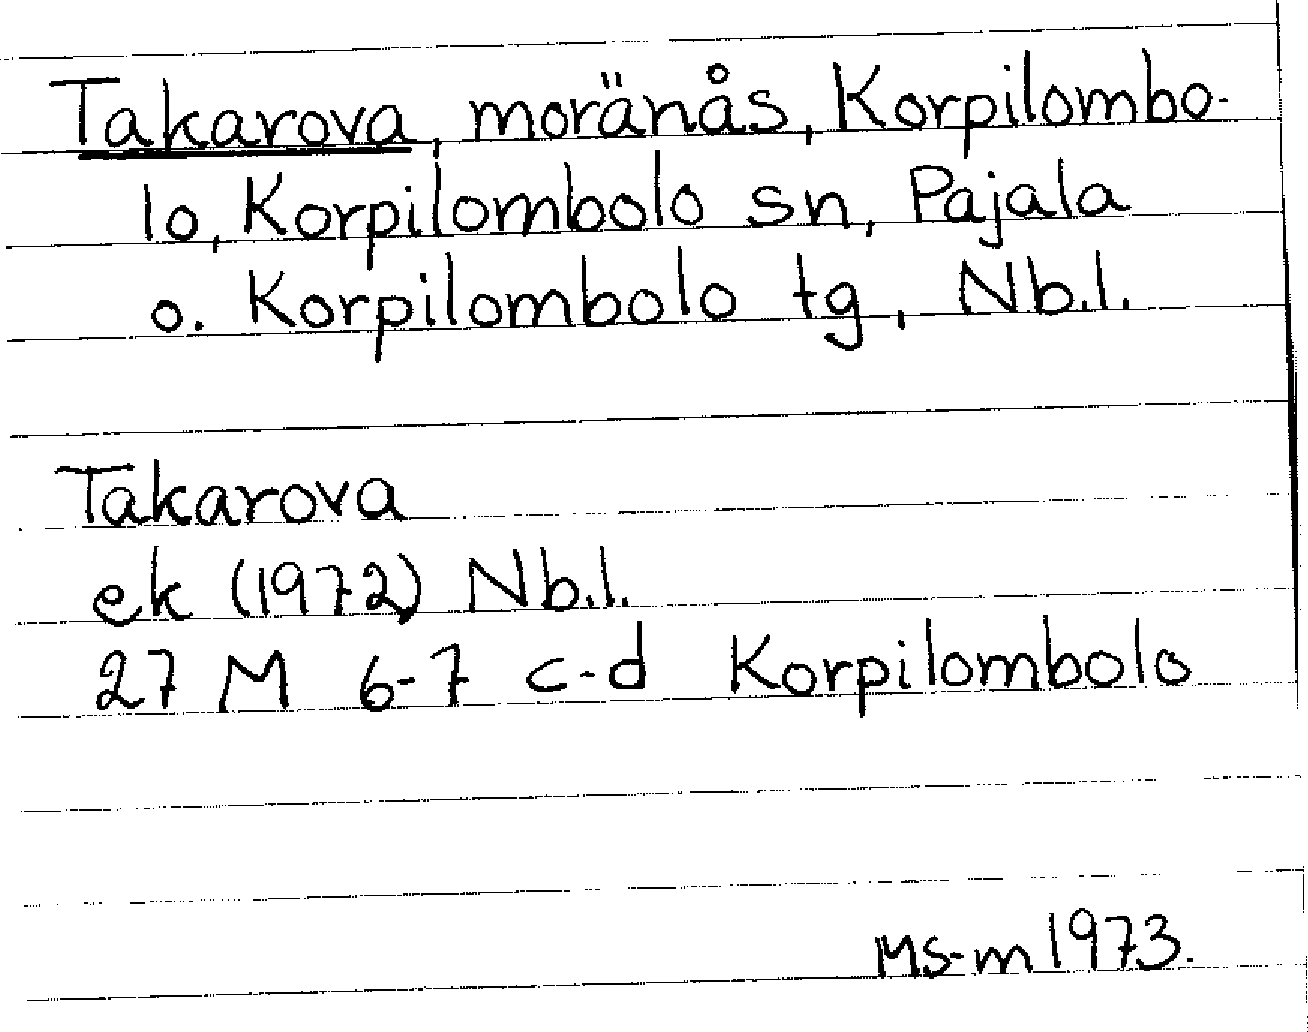 Takarova, moränås, Korpilombo-
lo, Korpilombolo sn, Pajala
o. Korpilombolo tg, Nb.l.
Takarova
ek (1972) Nb.l.
27 M 6-7 c-d Korpilombolo
MS-m 1973.